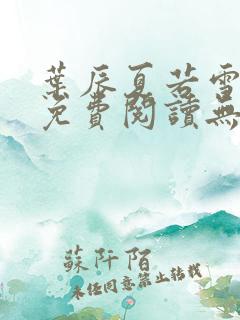 葉辰夏若雪
免費閱讀無
蘇阡陌
未經同意禁止轉載